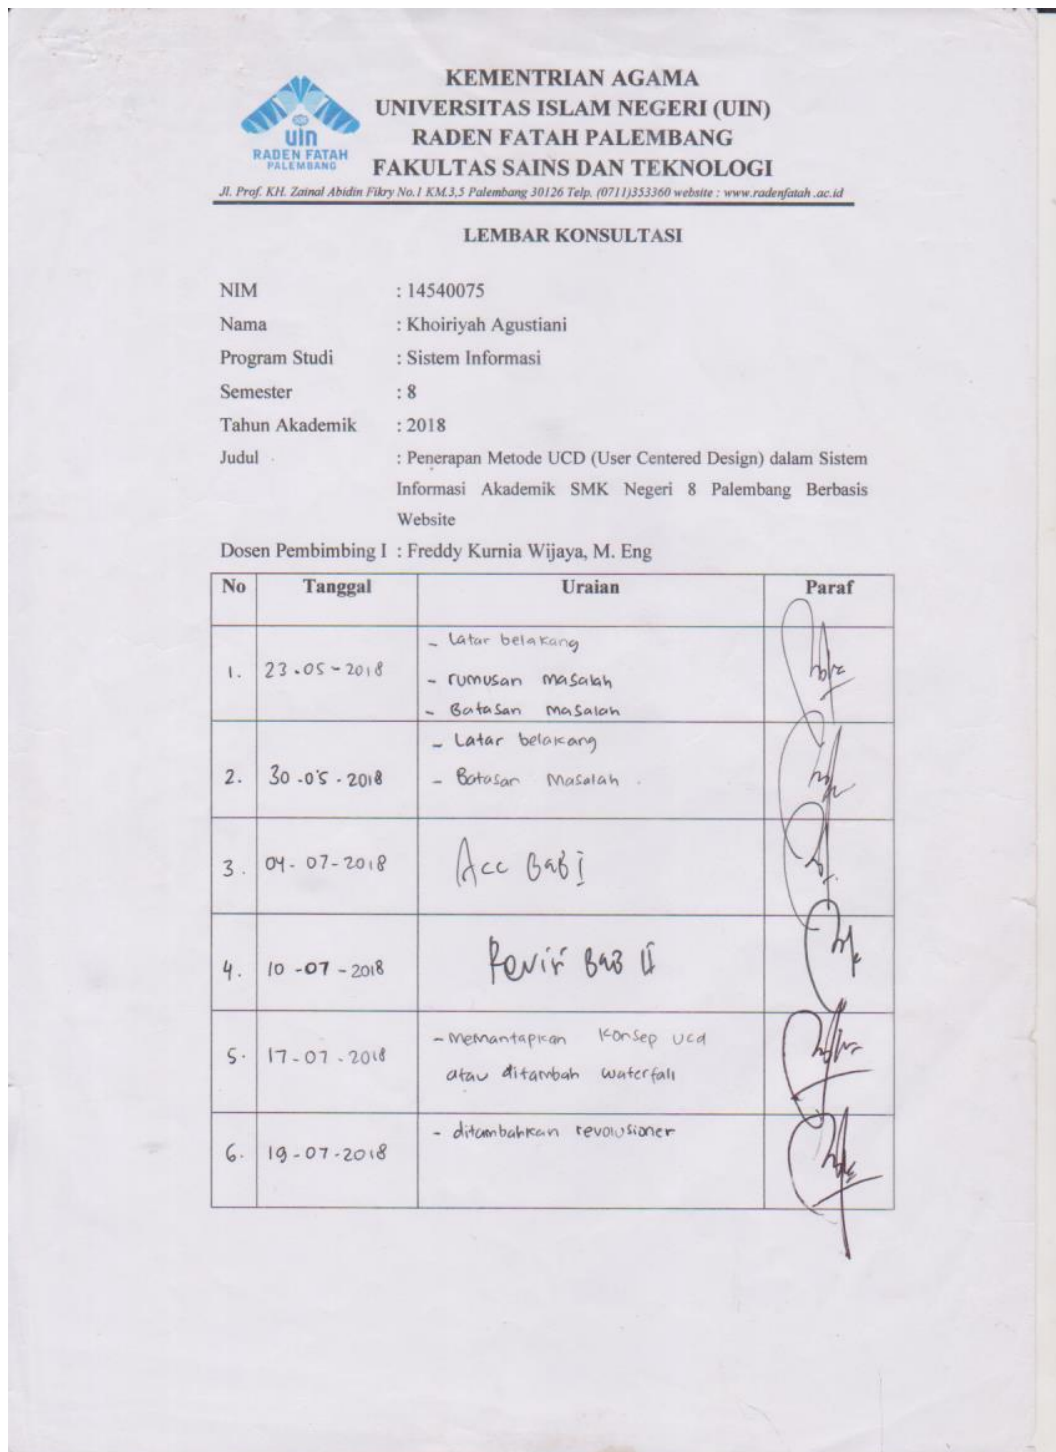 KEMENTRIAN AGAMA
UNIVERSITAS ISLAM NEGERI (UIN)
RADEN FATAH PALEMBANG
FAKULTAS SAINS DAN TEKNOLOGI
uin
RADEN FATAH
PALEMBANG
Jl. Prof. KH. Zainal Abidin Fikry No.1 KM.3,5 Palembang 30126 Telp. (0711)353360 website : www.radenfatah .ac.id
LEMBAR KONSULTASI
NIM : 14540075
Nama : Khoiriyah Agustiani
Program Studi : Sistem Informasi
Semester : 8
Tahun Akademik : 2018
Judul : Penerapan Metode UCD (User Centered Design) dalam Sistem
Informasi Akademik SMK Negeri 8 Palembang Berbasis
Website
Dosen Pembimbing I : Freddy Kurnia Wijaya, M. Eng
No Tanggal Uraian Paraf
- Latar belakang
1. 23-05-2018 - rumusan masalah
- Batasan masalah
- Latar belakang
2. 30-05-2018 - Batasan Masalah
3. 04-07-2018 Acc Bab I
4. 10-07-2018 Revisi Bab II
- Memantapkan Konsep ucd
5. 17-07-2018 atau ditambah waterfall
- ditambahkan revolusioner
6. 19-07-2018